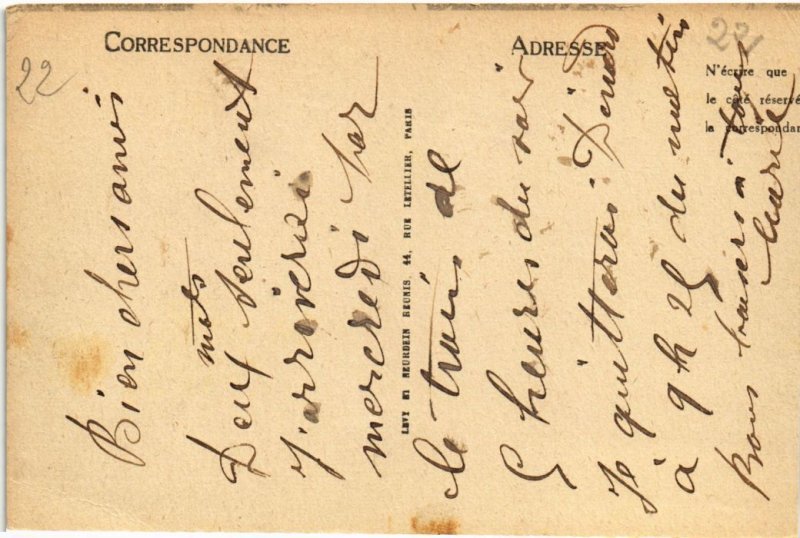 CORRESPONDANCE
ADRESSE
22
22
N'écrire que
le côté réservé
la correspondan
LEVY ET NEURDEIN REUNIS, 44, RUE LETELLIER, PARIS
Bien chers amis
mots
Deux seulement
J'arriverai
mercredi par
le train de
6 heures du soir
Je quitterai Dinard
à 9 h 25 du matin
Bons baisers à tous
Marie